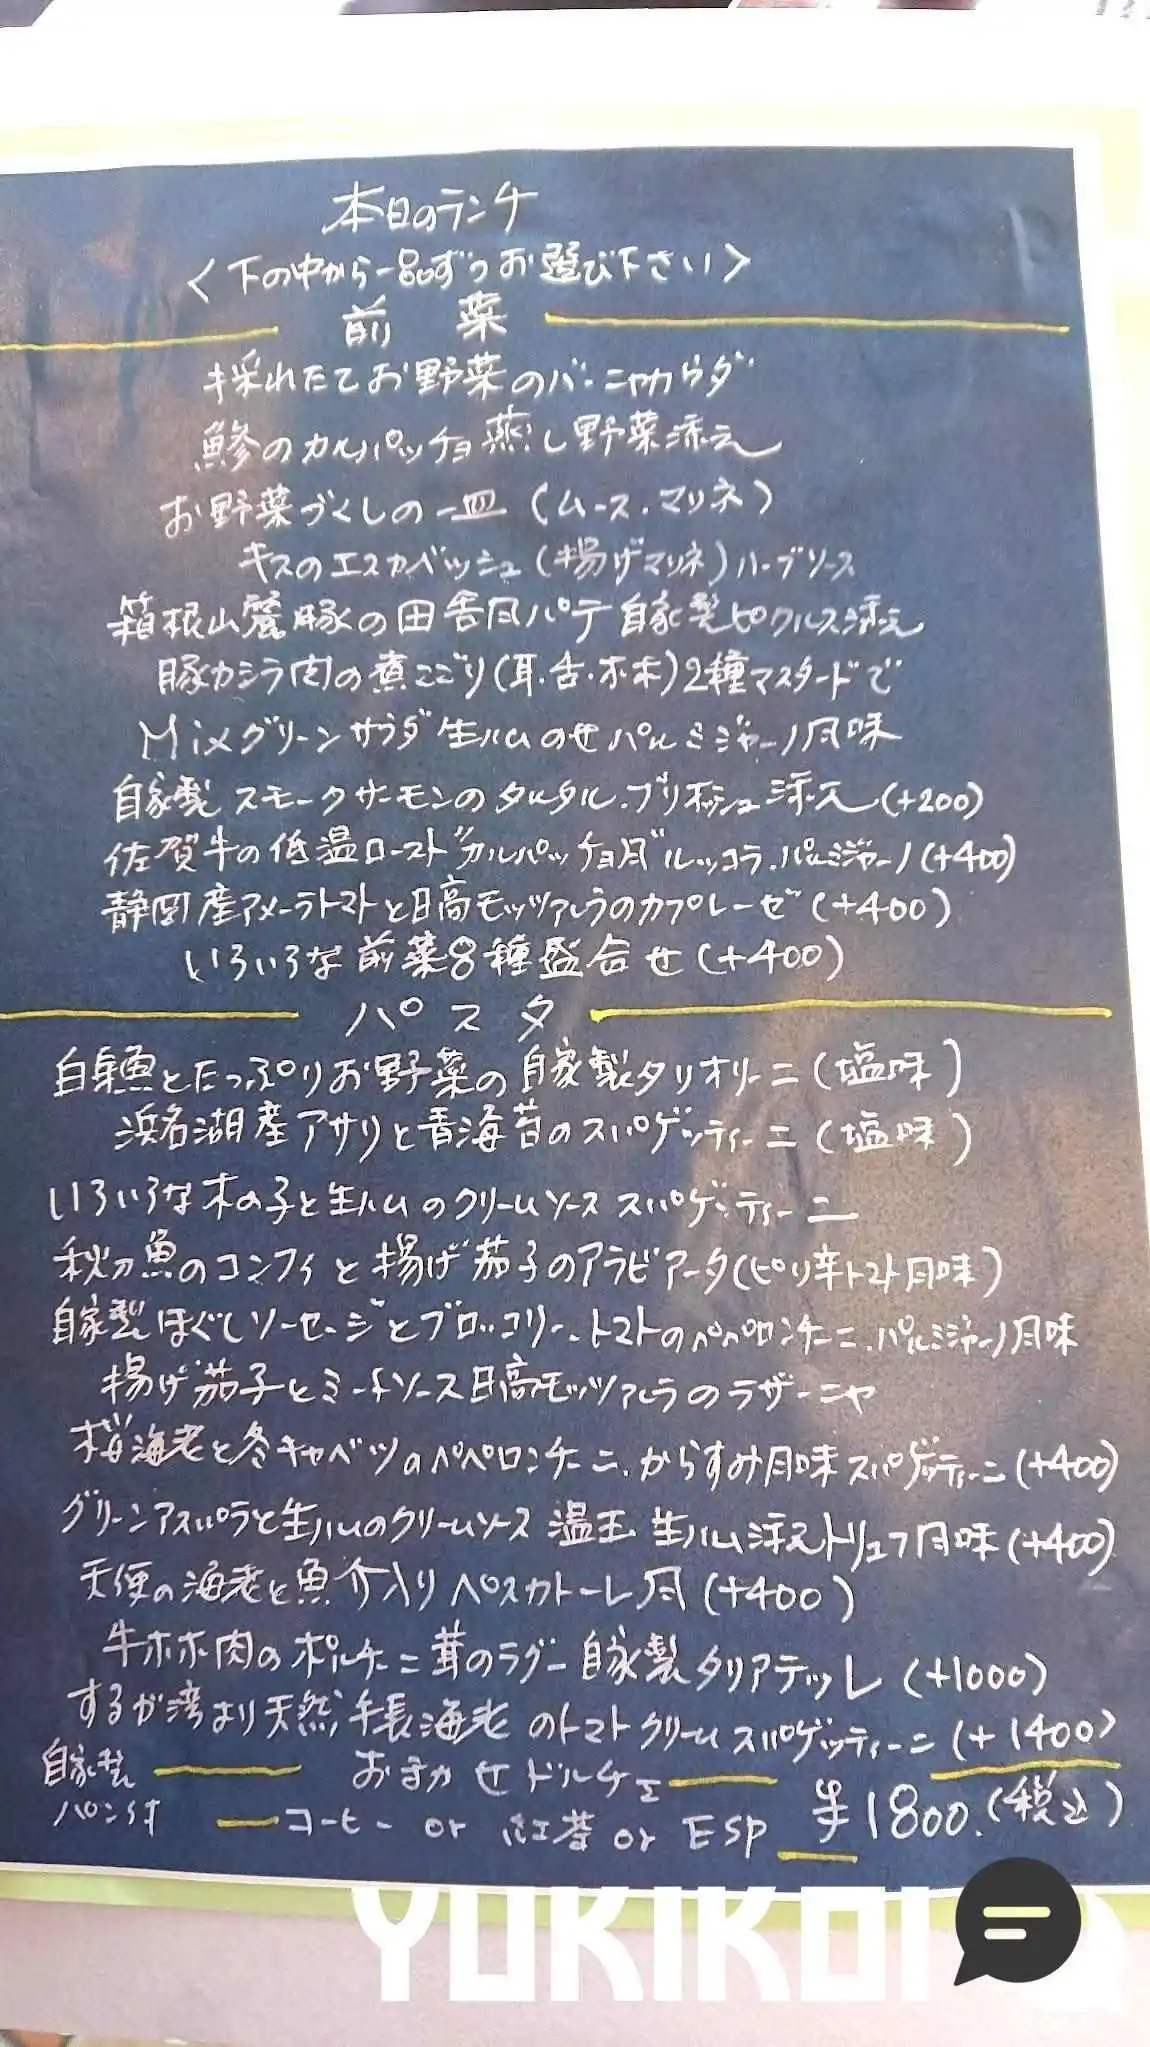 本日のランチ
<下の中から一品ずつお選び下さい>
前菜
採れたてお野菜のバーニャカウダ
鯵のカルパッチョ蒸し野菜添え
お野菜づくしの一皿(ムース・マリネ)
キスのエスカベッシュ(揚げマリネ)ハーブソース
箱根山麓豚の田舎風パテ自家製ピクルス添え
豚カシラ肉の煮こごり(耳・舌・ホホ)2種マスタードで
Mixグリーンサラダ生ハムのせパルミジャーノ風味
自家製スモークサーモンのタルタル・ブリオッシュ添え(+200)
佐賀牛の低温ローストカルパッチョ風ルッコラ・パルミジャーノ(+400)
静岡産アメーラトマトと日高モッツァレラのカプレーゼ(+400)
いろいろな前菜8種盛合せ(+400)
パスタ
白身魚とたっぷりお野菜の自家製タリオリーニ(塩味)
浜名湖産アサリと青海苔のスパゲッティーニ(塩味)
いろいろな木の子と生ハムのクリームソーススパゲッティーニ
秋刀魚のコンフィと揚げ茄子のアラビアータ(ピリ辛トマト風味)
自家製ほぐしソーセージとブロッコリー、トマトのペペロンチーニ、パルミジャーノ風味
揚げ茄子とミートソース日高モッツァレラのラザーニャ
桜海老と冬キャベツのペペロンチーニ、からすみ風味スパゲッティーニ(+400)
グリーンアスパラと生ハムのクリームソース 温玉 生ハム添えトリュフ風味(+400)
天使の海老と魚介入りペスカトーレ風(+400)
牛ホホ肉のポルチーニ茸のラグー自家製タリアテッレ(+1000)
するが湾より天然手長海老のトマトクリームスパゲッティーニ(+1400)
自家製 おまかせドルチェ
パン付 コーヒー or 紅茶 or ESP ¥1800.(税込)
YUKIKOI